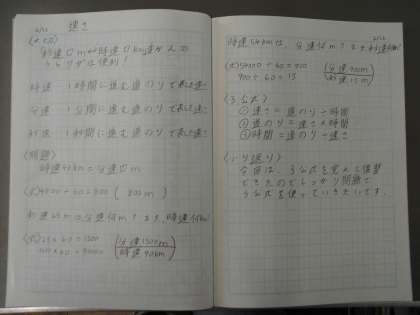 2/12 速さ
〈めあて〉
時速 1時間に進む道のりで表した速さ
分速 1分間に進む道のりで表した速さ
秒速 1秒間に進む道のりで表した速さ
〈問題〉
時速 km=分速□m
(式) ÷60=800 (800m)
秒速25mは、分速何m?また、時速何km?
(式)25×60=1500
1500×60=90000
(分速1500m
時速90km)
2/12
時速54kmは、分速何m?また秒速何m?
(式)54000÷60=900
900÷60=15
(分速900m
秒速15m)
〈3公式〉
①速さ=道のり÷時間
②道のり=速さ×時間
③時間=道のり÷速さ
〈ふり返り〉
今回は、3公式を覚えて復習
できたのでしっかり問題で
3公式を使っていきたいです。